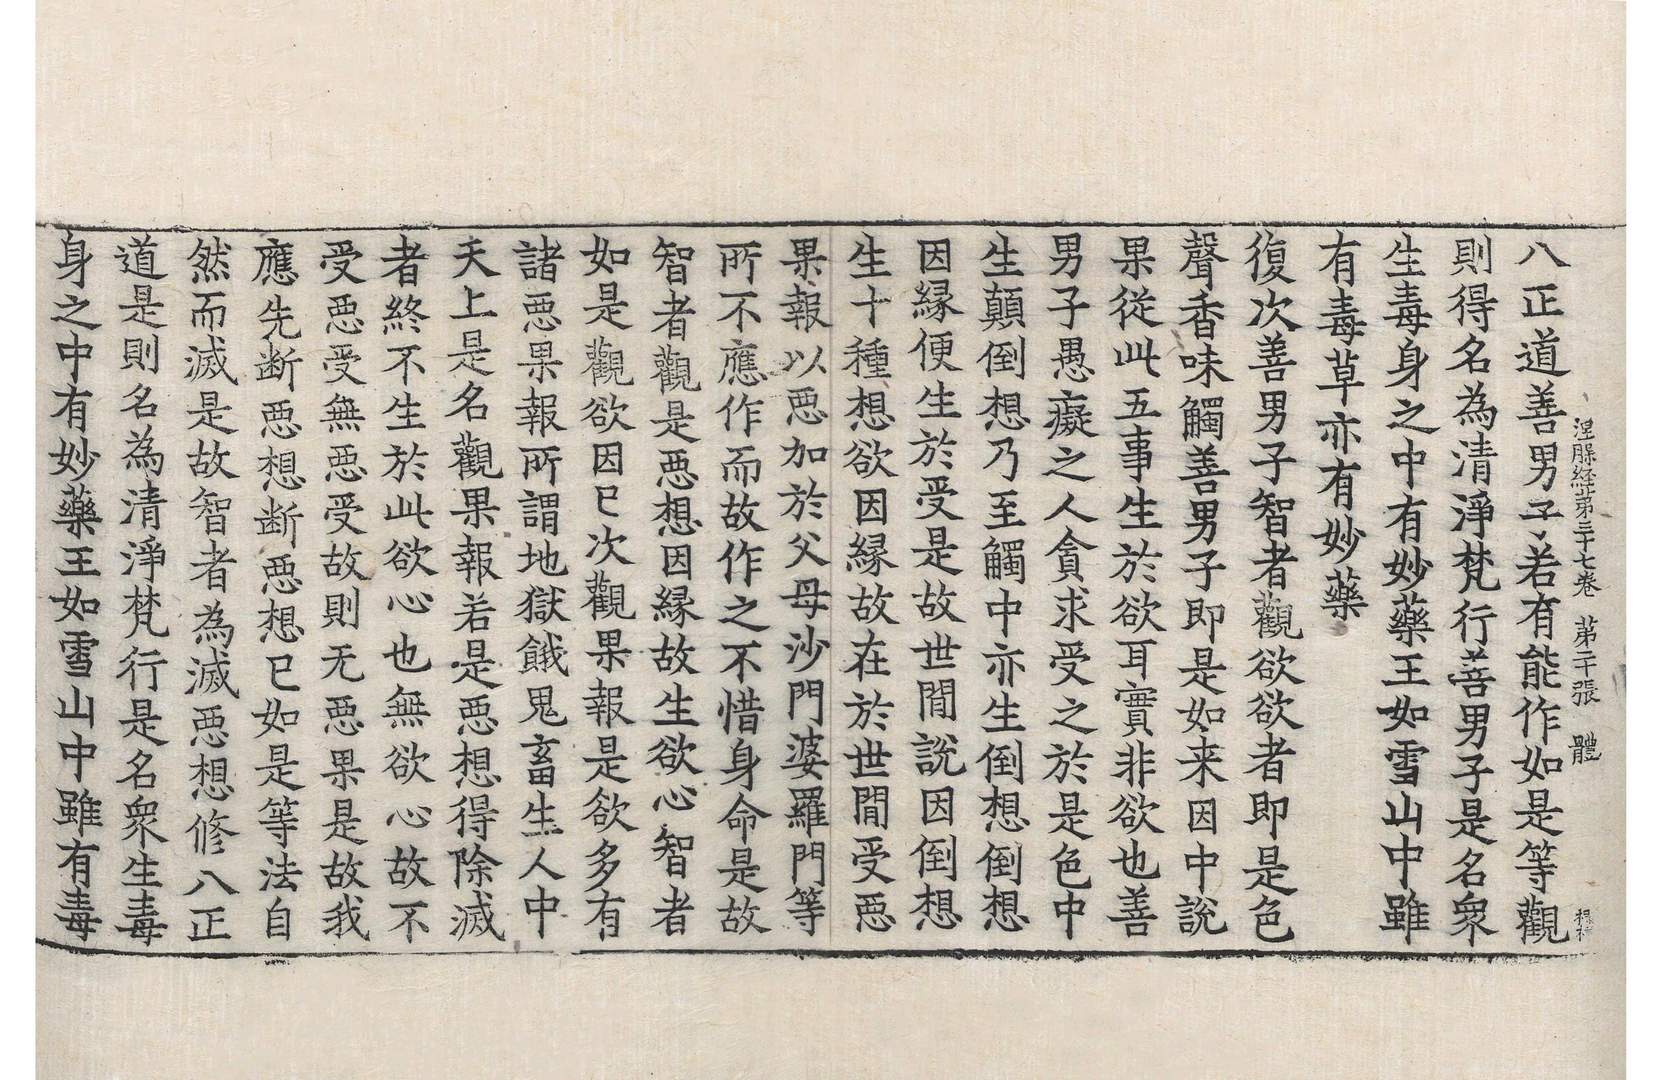 涅槃経第三十七卷　第二十張　體
八正道善男子若有能作如是等觀
則得名為清淨梵行善男子是名衆
生毒身之中有妙藥王如雪山中雖
有毒草亦有妙藥
復次善男子智者觀欲欲者即是色
聲香味觸善男子即是如来因中說
果從此五事生於欲耳實非欲也善
男子愚癡之人貪求受之於是色中
生顛倒想乃至觸中亦生倒想倒想
因縁便生於受是故世間說因倒想
生十種想欲因縁故在於世間受惡
果報以惡加於父母沙門婆羅門等
所不應作而故作之不惜身命是故
智者觀是惡想因縁故生欲心智者
如是觀欲因已次觀果報是欲多有
諸惡果報所謂地獄餓鬼畜生人中
天上是名觀果報若是惡想得除滅
者終不生於此欲心也無欲心故不
受惡受無惡受故則无惡果是故我
應先断惡想断惡想已如是等法自
然而滅是故智者為滅惡想修八正
道是則名為清淨梵行是名衆生毒
身之中有妙藥王如雪山中雖有毒